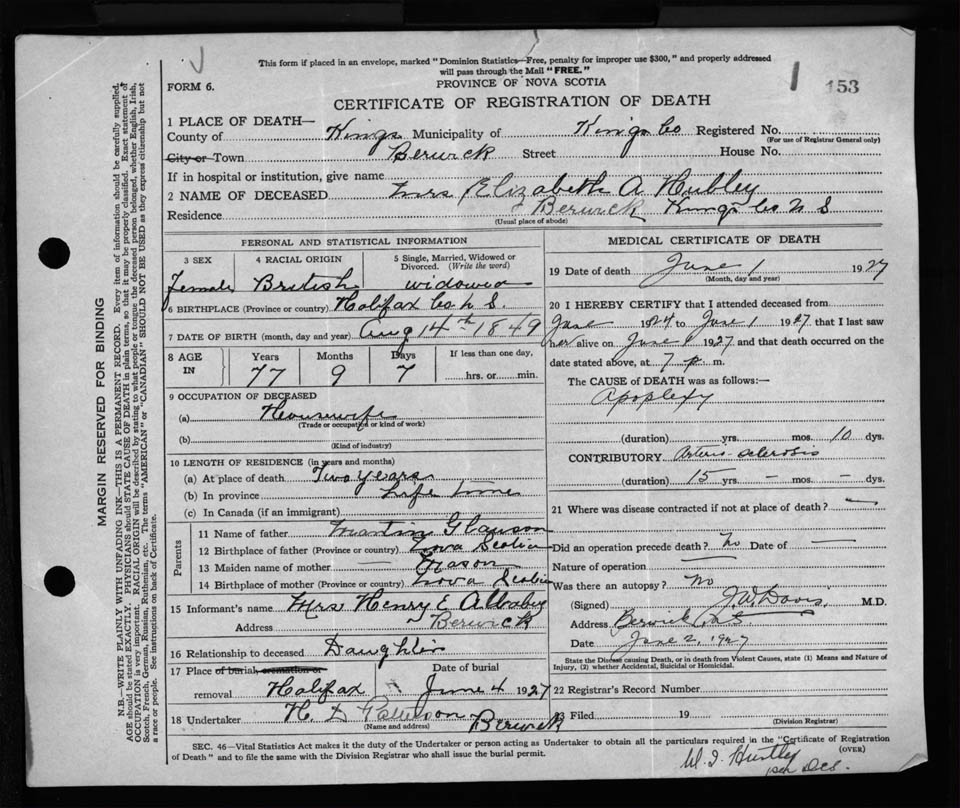 This form if placed in an envelope, marked "Dominion Statistics—Free, penalty for improper use $300," and properly addressed
will pass through the Mail "FREE."
FORM 6.
PROVINCE OF NOVA SCOTIA
153
CERTIFICATE OF REGISTRATION OF DEATH
1 PLACE OF DEATH—
County of Kings Municipality of Kings Co Registered No.
(For use of Registrar General only)
City or Town Berwick Street House No.
If in hospital or institution, give name
2 NAME OF DECEASED Mrs Elizabeth A Hubley
Residence Berwick Kings Co N S
(Usual place of abode)
PERSONAL AND STATISTICAL INFORMATION
3 SEX 4 RACIAL ORIGIN 5 Single, Married, Widowed or Divorced. (Write the word)
Female British widowed
6 BIRTHPLACE (Province or country) Halifax Co. N S.
7 DATE OF BIRTH (month, day and year) Aug 14th 1849
8 AGE IN Years Months Days If less than one day,
77 9 7 hrs. or min.
9 OCCUPATION OF DECEASED
(a) Housewife
(Trade or occupation or kind of work)
(b)
(Kind of industry)
10 LENGTH OF RESIDENCE (in years and months)
(a) At place of death Two years
(b) In province Life time
(c) In Canada (if an immigrant)
Parents
11 Name of father Martin
12 Birthplace of father (Province or country) Nova Scotia
13 Maiden name of mother — Mason
14 Birthplace of mother (Province or country) Nova Scotia
15 Informant's name Mrs Henry E
Address Berwick
16 Relationship to deceased Daughter
17 Place of burial cremation or Date of burial
removal Halifax June 4 1927
18 Undertaker H. D Berwick
(Name and address)
MEDICAL CERTIFICATE OF DEATH
19 Date of death June 1 1927
(Month, day and year)
20 I HEREBY CERTIFY that I attended deceased from
June 1924 to June 1 1927 that I last saw
her alive on June 1 1927 and that death occurred on the
date stated above, at 7 p. m.
The CAUSE of DEATH was as follows:—
Apoplexy
(duration) yrs. mos. 10 dys.
CONTRIBUTORY Arterio-sclerosis
(duration) 15 yrs. — mos. — dys.
21 Where was disease contracted if not at place of death? —
Did an operation precede death? No Date of —
Nature of operation —
Was there an autopsy? No
(Signed) J W Davis M.D.
Address Berwick
Date June 2, 1927
State the Disease causing Death, or in death from Violent Causes, state (1) Means and Nature of
Injury, (2) whether Accidental, Suicidal or Homicidal.
22 Registrar's Record Number
23 Filed 19
(Division Registrar)
SEC. 46—Vital Statistics Act makes it the duty of the Undertaker or person acting as Undertaker to obtain all the particulars required in the "Certificate of Registration
of Death" and to file the same with the Division Registrar who shall issue the burial permit.
(OVER)
W. I. Huntley
MARGIN RESERVED FOR BINDING
N.B.—WRITE PLAINLY WITH UNFADING INK—THIS IS A PERMANENT RECORD. Every item of information should be carefully supplied.
AGE should be stated EXACTLY. PHYSICIANS should STATE CAUSE OF DEATH in plain terms, so that it may be properly classified. Exact statement of
OCCUPATION is very important. RACIAL ORIGIN will be described by stating to what people or tongue the deceased person belonged, whether English, Irish,
Scotch, French, German, Russian, Ruthenian, etc. The terms "AMERICAN" or "CANADIAN" SHOULD NOT BE USED as they express citizenship but not
a race or people. See instructions on back of Certificate.